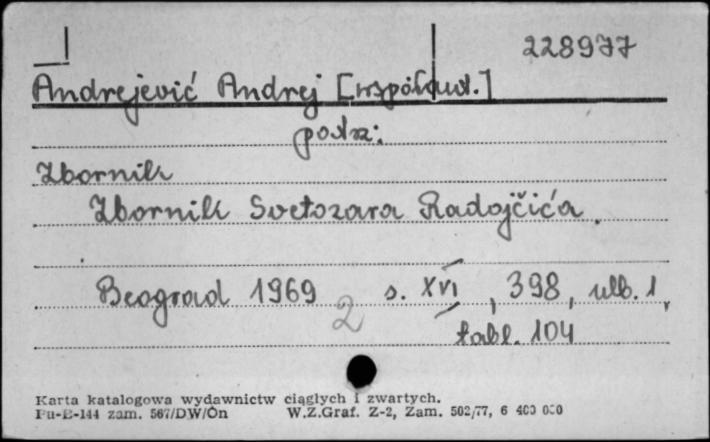 228977
Andrejević Andrej [współaut.]
patrz:
Zbornik
Zbornik Svetozara Radojčića.
Beograd 1969 s. XVI, 398, ulb. 1,
2
tabl. 104
Karta katalogowa wydawnictw ciągłych i zwartych.
Pu-B-144 zam. 567/DW/On W.Z.Graf. Z-2, Zam. 502/77, 6 400 000